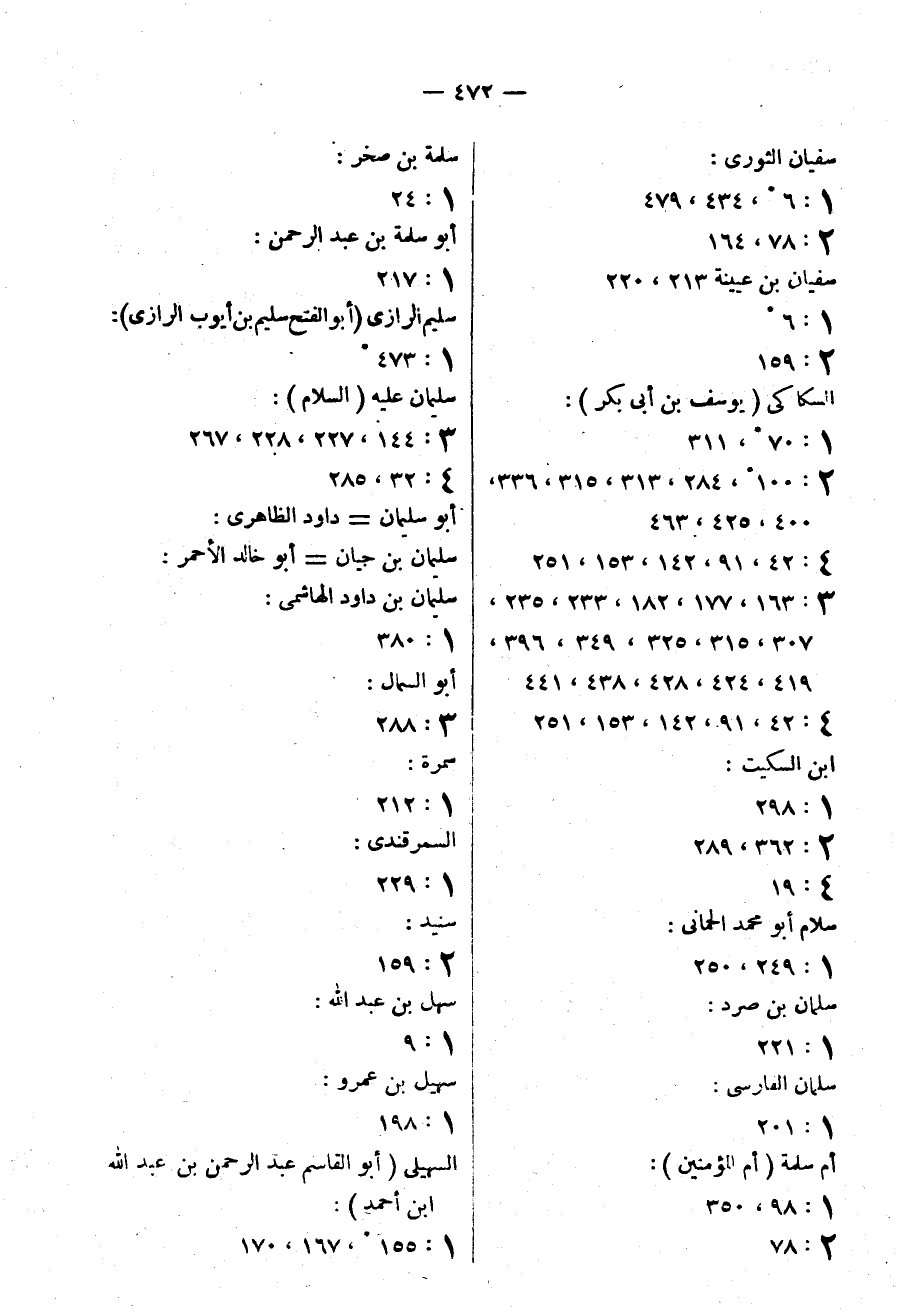 — ٤٧٢ —
سفيان الثورى :
١ : ٦ * ، ٤٣٤ ، ٤٧٩
٢ : ٧٨ ، ١٦٤
سفيان بن عيينة ٢١٣ ، ٢٢٠
١ : ٦ *
٢ : ١٥٩
السكاكى ( يوسف بن أبى بكر ) :
١ : ٧٠ * ، ٣١١
٢ : ١٠٠ * ، ٢٨٤ ، ٣١٣ ، ٣١٥ ، ٣٣٦ ،
٤٠٠ ، ٤٢٥ ، ٤٦٣
٤ : ٤٢ ، ٩١ ، ١٤٢ ، ١٥٣ ، ٢٥١
٣ : ١٦٣ ، ١٧٧ ، ١٨٢ ، ٢٣٣ ، ٢٣٥ ،
٣٠٧ ، ٣١٥ ، ٣٢٥ ، ٣٤٩ ، ٣٩٦ ،
٤١٩ ، ٤٢٤ ، ٤٢٨ ، ٤٣٨ ، ٤٤١
٤ : ٤٢ ، ٩١ ، ١٤٢ ، ١٥٣ ، ٢٥١
ابن السكيت :
١ : ٢٩٨
٢ : ٣٦٢ ، ٢٨٩
٤ : ١٩
سلام أبو محمد الحمانى :
١ : ٢٤٩ ، ٢٥٠
سلمان بن صرد :
١ : ٢٢١
سلمان الفارسى :
١ : ٢٠١
أم سلمة ( أم المؤمنين ) :
١ : ٩٨ ، ٣٥٠
٢ : ٧٨
سلمة بن صخر :
١ : ٢٤
أبو سلمة بن عبد الرحمن :
١ : ٢١٧
سليم الرازى ( أبو الفتح سليم بن أيوب الرازى ) :
١ : ٤٧٣ *
سليمان عليه ( السلام ) :
٣ : ١٤٤ ، ٢٢٧ ، ٢٢٨ ، ٢٦٧
٤ : ٣٢ ، ٢٨٥
أبو سليمان = داود الظاهرى :
سليمان بن حيان = أبو خالد الأحمر :
سليمان بن داود الهاشمى :
١ : ٣٨٠
أبو السمال :
٣ : ٢٨٨
سمرة :
١ : ٢١٢
السمرقندى :
١ : ٢٢٩
سنيد :
٢ : ١٥٩
سهل بن عبد الله :
١ : ٩
سهيل بن عمرو :
١ : ١٩٨
السهيلى ( أبو القاسم عبد الرحمن بن عبد الله
ابن أحمد ) :
١ : ١٥٥ * ، ١٦٧ ، ١٧٠